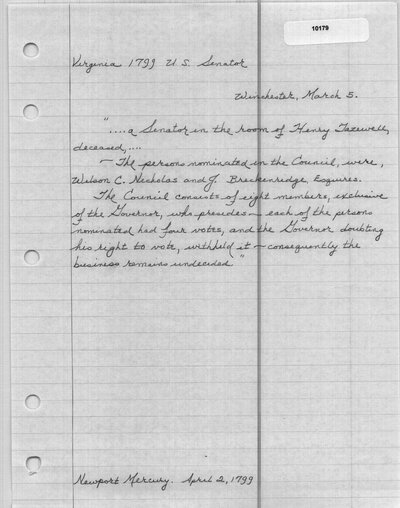 10179
Virginia 1799 U.S. Senator
Winchester, March 5.
"....a Senator in the room of Henry Tazewell,
deceased,....
— The persons nominated in the Council, were,
Wilson C. Nicholas and J. Breckenridge, Esquires.
The Council consists of eight members, exclusive
of the Governor, who presides — each of the persons
nominated had four votes, and the Governor doubting
his right to vote, withheld it — consequently the
business remains undecided."
Newport Mercury. April 2, 1799